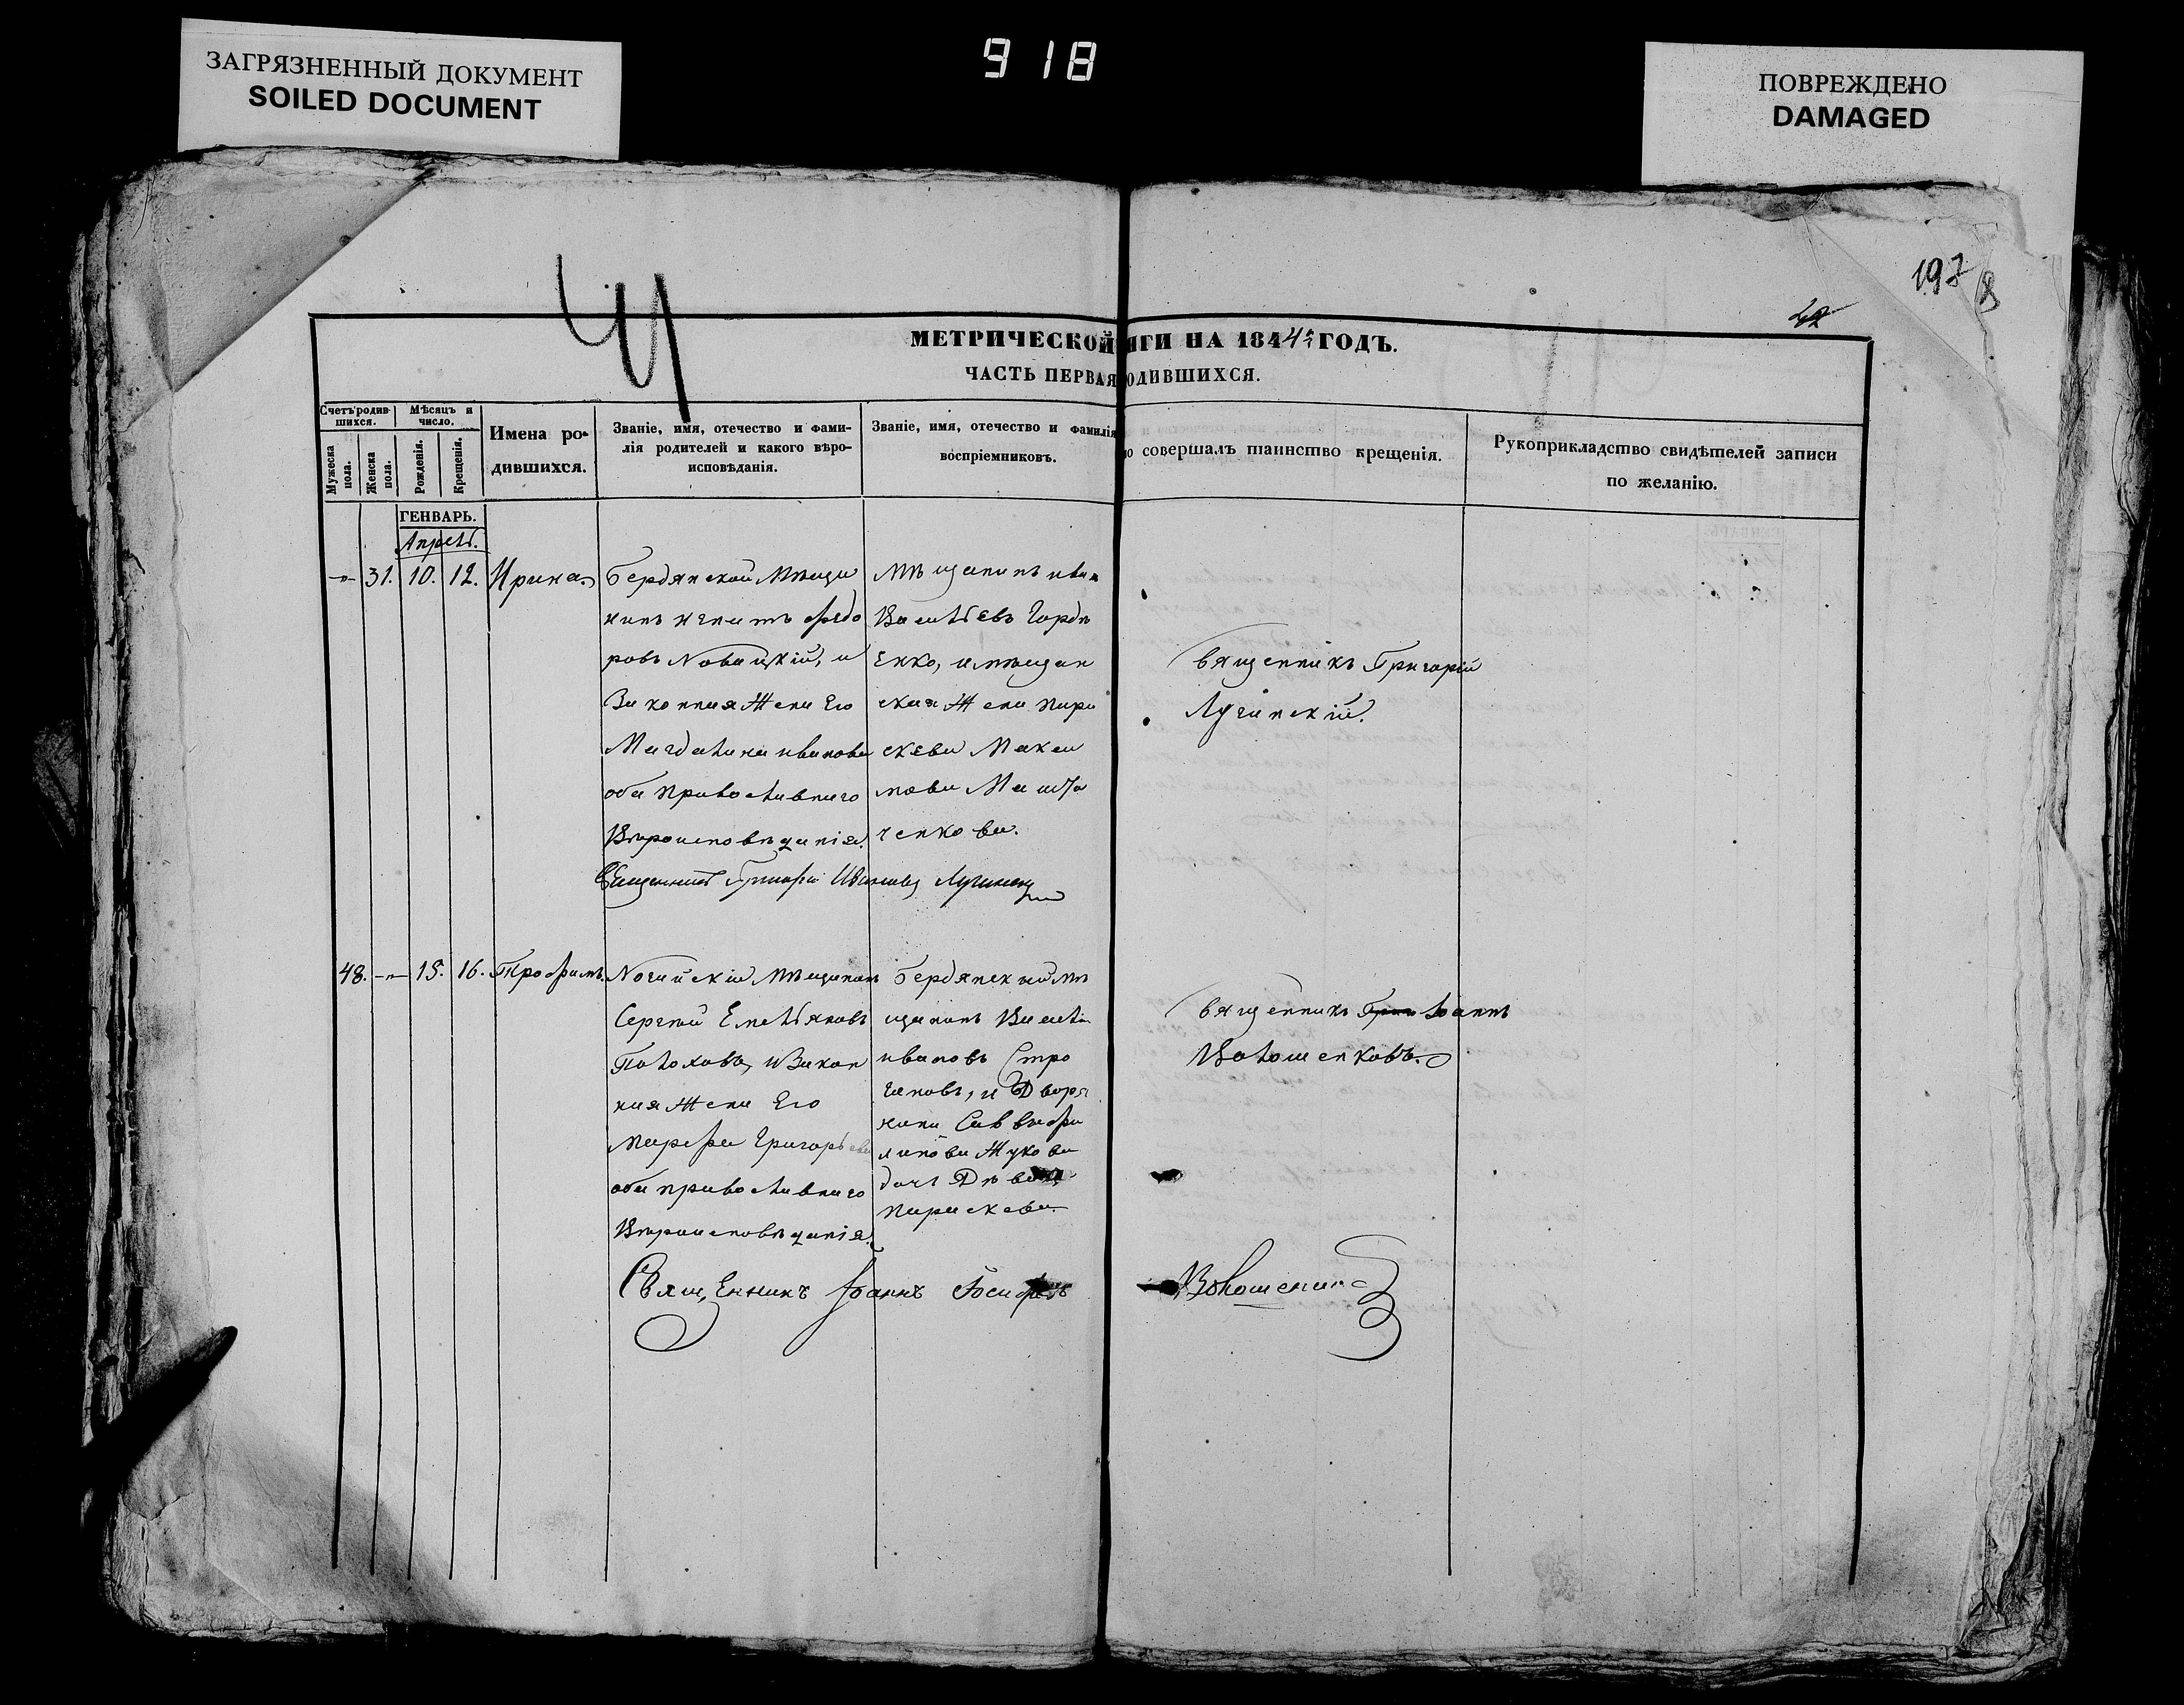 ЗАГРЯЗНЕННЫЙ ДОКУМЕНТ
SOILED DOCUMENT
918
ПОВРЕЖДЕНО
DAMAGED
197
МЕТРИЧЕСКОЙ ИГИ НА 1844й ГОДЪ.
ЧАСТЬ ПЕРВАЯ ОДИВШИХСЯ.
Счетъ родив-
шихся.
Мужеска
пола.
Женска
пола.
Мѣсяцъ и
число.
Рожденія.
Крещенія.
Имена ро-
дившихся.
Званіе, имя, отечество и фами-
лія родителей и какого вѣро-
исповѣданія.
Званіе, имя, отечество и фамилія
воспріемниковъ.
о совершалъ таинство крещенія.
Рукоприкладство свидѣтелей записи
по желанію.
ГЕНВАРЬ.
Апрель.
-"- 31. 10. 12. Ирина.
Бердянской Мѣща
нинъ Игнатъ Федо
ровъ Новицкій, и
Законная Жена Его
Магдалина Иванова
оба православнаго
Вѣроисповѣданія.
Мѣщанинъ Иван
Васильевъ Гордѣ
Енко, и мѣщан
ская Жена Пара
скева Макси
мова
ченкова.
вященникъ Григорій
Лучинскій.
Священникъ Григорій Ивановъ Лучинскій
48. -"- 15. 16. Трофимъ.
Ногайскій Мѣщанинъ
Сергѣй Емельяновъ
Полоховъ, и Закон
ная Жена Его
Марфа Григорьева
оба православнаго
Вѣроисповѣданія.
Бердянский мѣ
щанинъ Василій
Ивановъ Стро
гановъ, и Дворя
нина Саввы Фи
липова Жукова
дочь Дѣвица
Параскева.
вященникъ Іоаннъ
Волошенковъ.
Священникъ Іоаннъ Іосифовъ Волошенковъ